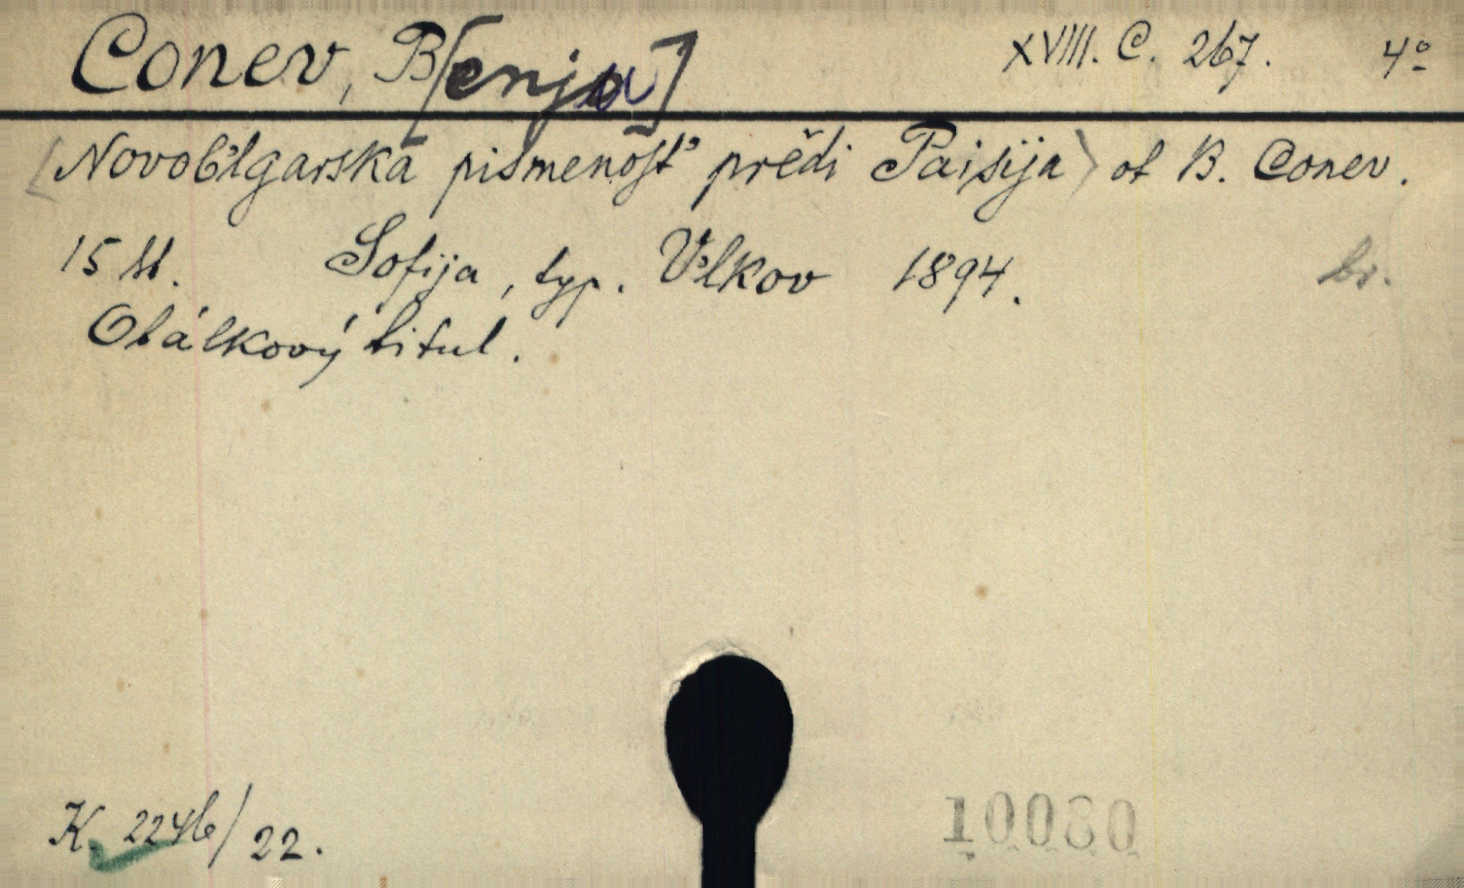 Conev, B[enju] XVIII. C. 267. 4º
<Novobʼlgarska pismenostʼ prědi Paisija> ot B. Conev.
15 st. Sofija, typ. Vʼlkov 1894. br.
Obálkový titul.
K. 2246/22.
10080